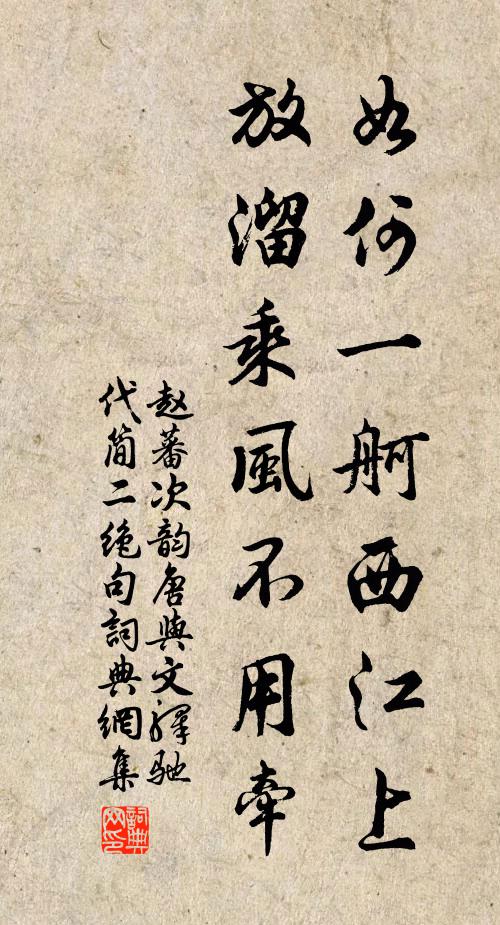 如何一舸西江上
放溜乘風不用牽
赵蕃次韵唐與文驛馳
代简二絶句詞典網集
詞典网印